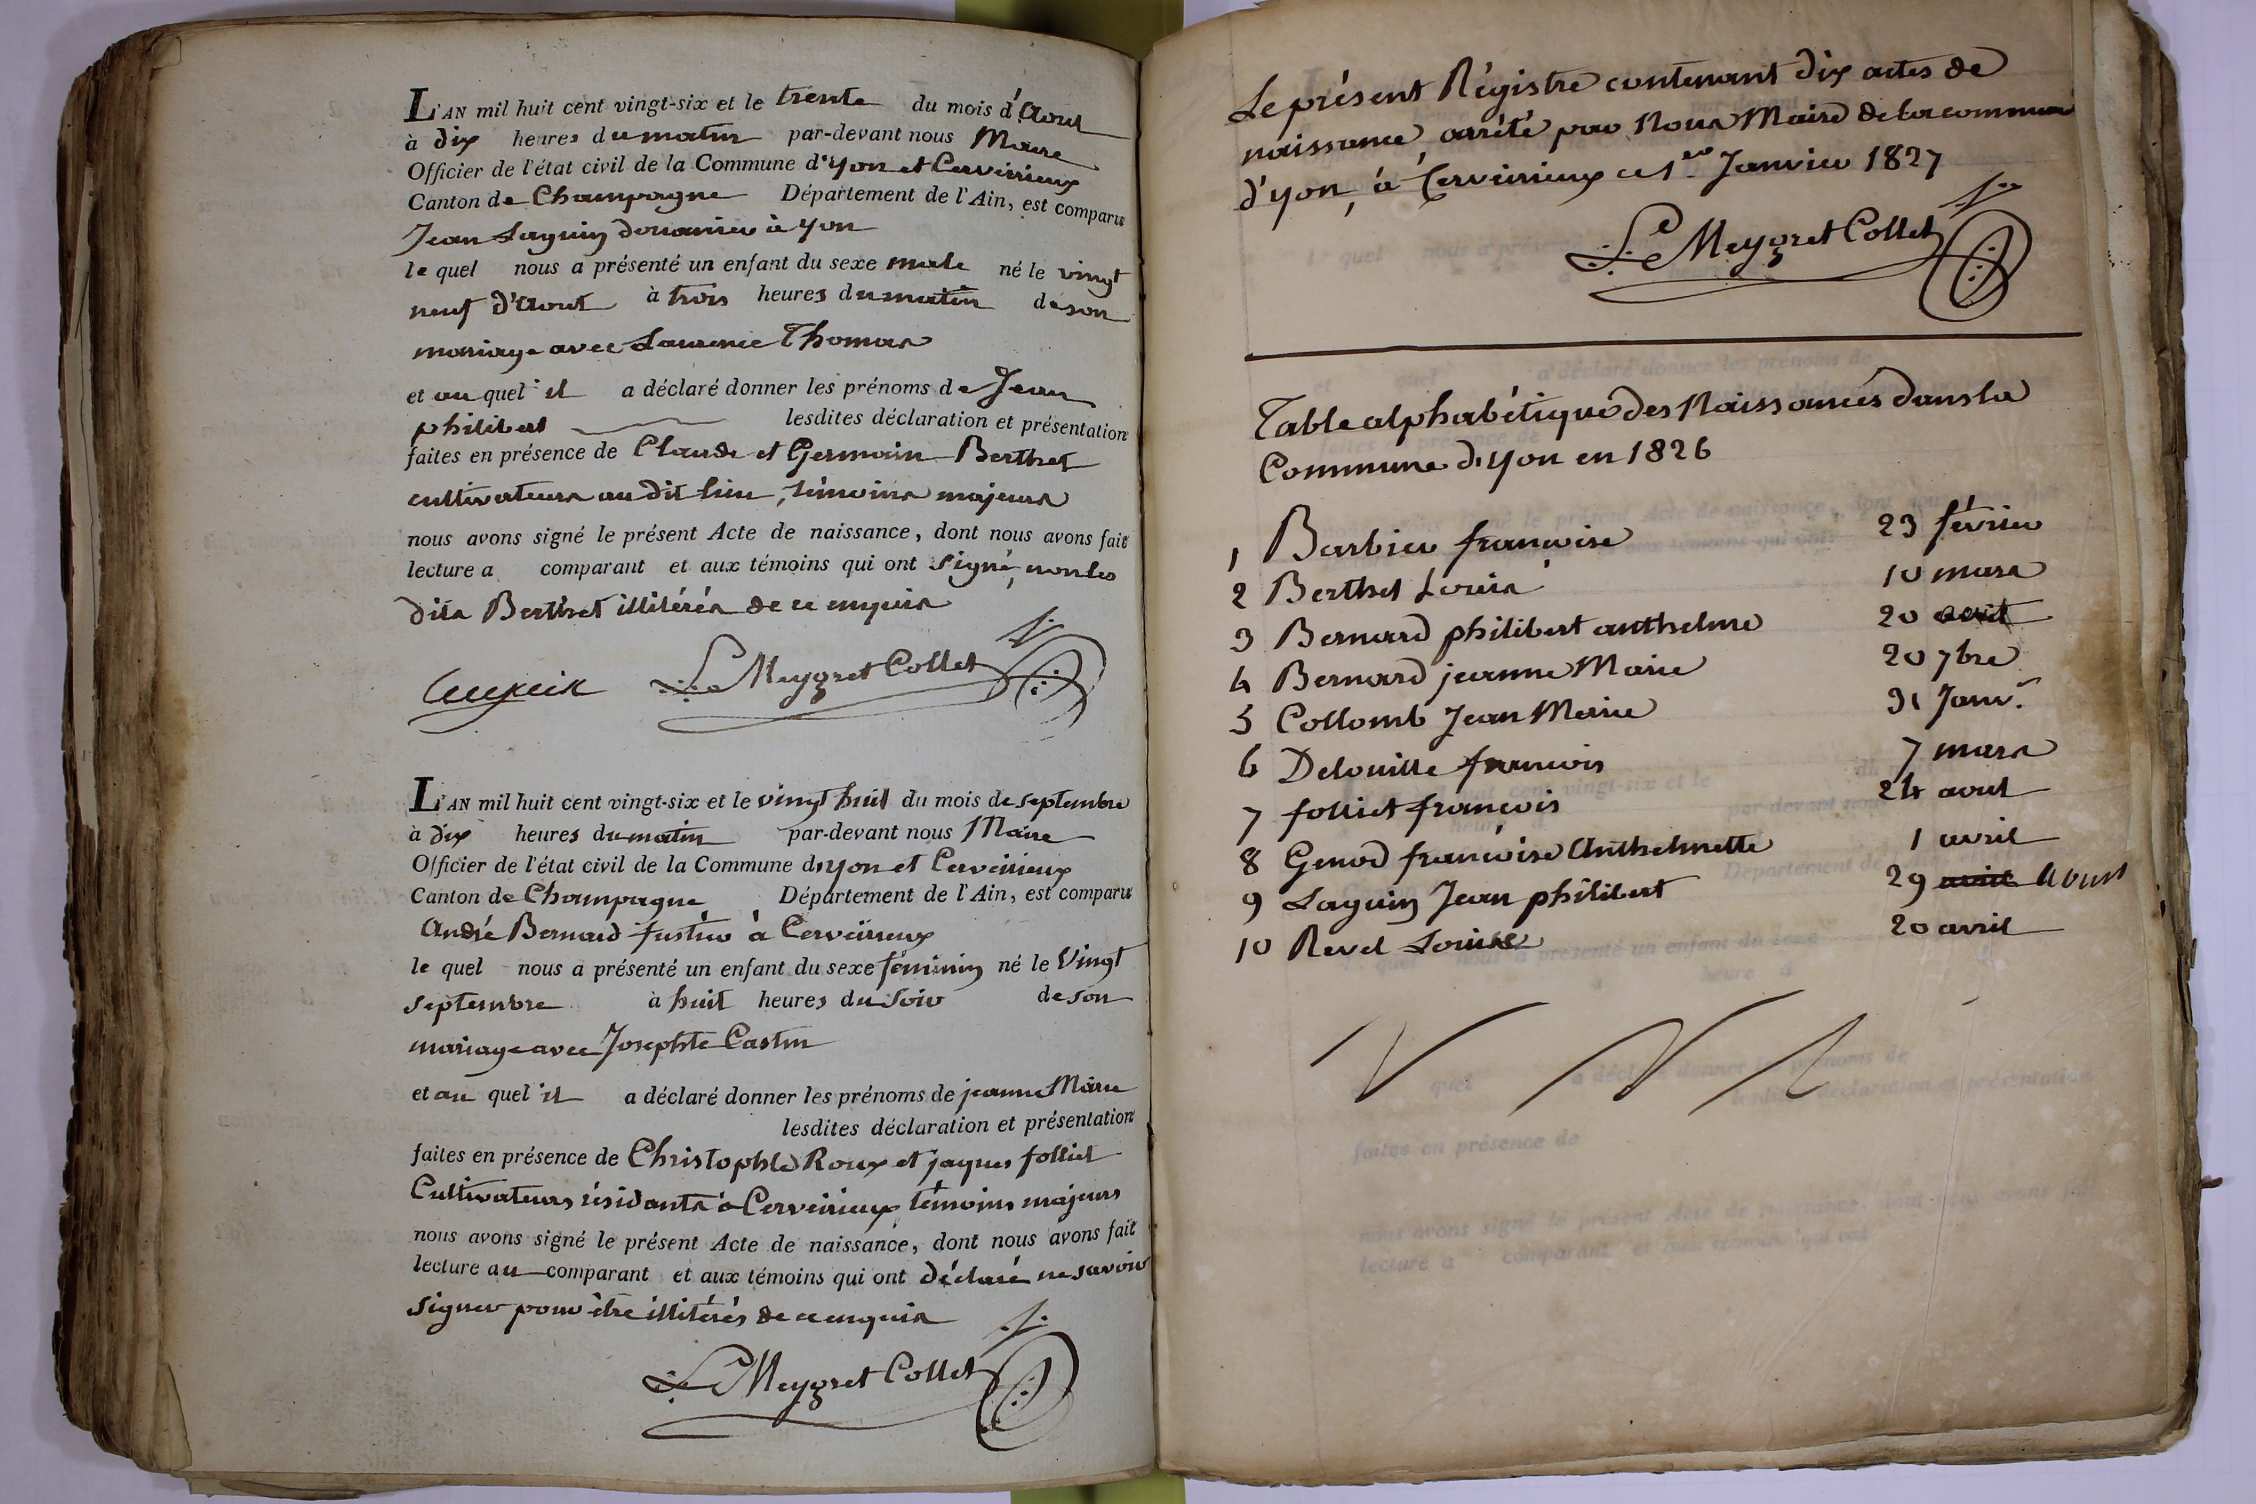 L'AN mil huit cent vingt-six et le trente du mois d'Aout
à dix heures du matin par-devant nous Maire
Officier de l'état civil de la Commune d'yon et Cerveirieux
Canton de Champagne Département de l'Ain, est comparu
Jean Laguin douanier à yon
le quel nous a présenté un enfant du sexe male né le vingt
neuf d'Aout à trois heures du matin de son
mariage avec Laurence Thomas
et au quel il a déclaré donner les prénoms de Jean
philibert lesdites déclaration et présentation
faites en présence de Claude et Germain Berthet
cultivateurs au dit lieu, témoins majeurs
nous avons signé le présent Acte de naissance, dont nous avons fait
lecture a comparant et aux témoins qui ont signé, non les
dits Berthet illitérés de ce enquis
Laguin Le Meygret Collet
L'AN mil huit cent vingt-six et le vingt huit du mois de septembre
à dix heures du matin par-devant nous Maire
Officier de l'état civil de la Commune d'yon et Cerveirieux
Canton de Champagne Département de l'Ain, est comparu
André Bernard à Cerveirieux
le quel nous a présenté un enfant du sexe féminin né le Vingt
septembre à huit heures du soir de son
mariage avec Josephte Castin
et au quel il a déclaré donner les prénoms de jeanne Marie
lesdites déclaration et présentation
faites en présence de Christophle Roux et jaques folliet
Cultivateurs résidants à Cerveirieux, témoins majeurs
nous avons signé le présent Acte de naissance, dont nous avons fait
lecture au comparant et aux témoins qui ont déclaré ne savoir
signer pour être illitérés de ce enquis
Le Meygret Collet
Le présent Régistre contenant dix actes de
naissance, arrêté par Nous Maire de la commune
d'yon, à Cerveirieux ce 1er Janvier 1827
Le Meygret Collet
Table alphabétique des Naissances dans la
Commune d'yon en 1826
1 Barbier françoise 23 février
2 Berthet Louis 10 mars
3 Bernard philibert anthelme 20 avril
4 Bernard jeanne Marie 20 7bre
5 Collomb Jean Marie 31 Janv.r
6 Delouille françois 7 mars
7 folliet françois 24 aout
8 Genod françoise Anthelmette 1 avril
9 Laguin Jean philibert 29 avril Aoust
10 Revel Louise 20 avril